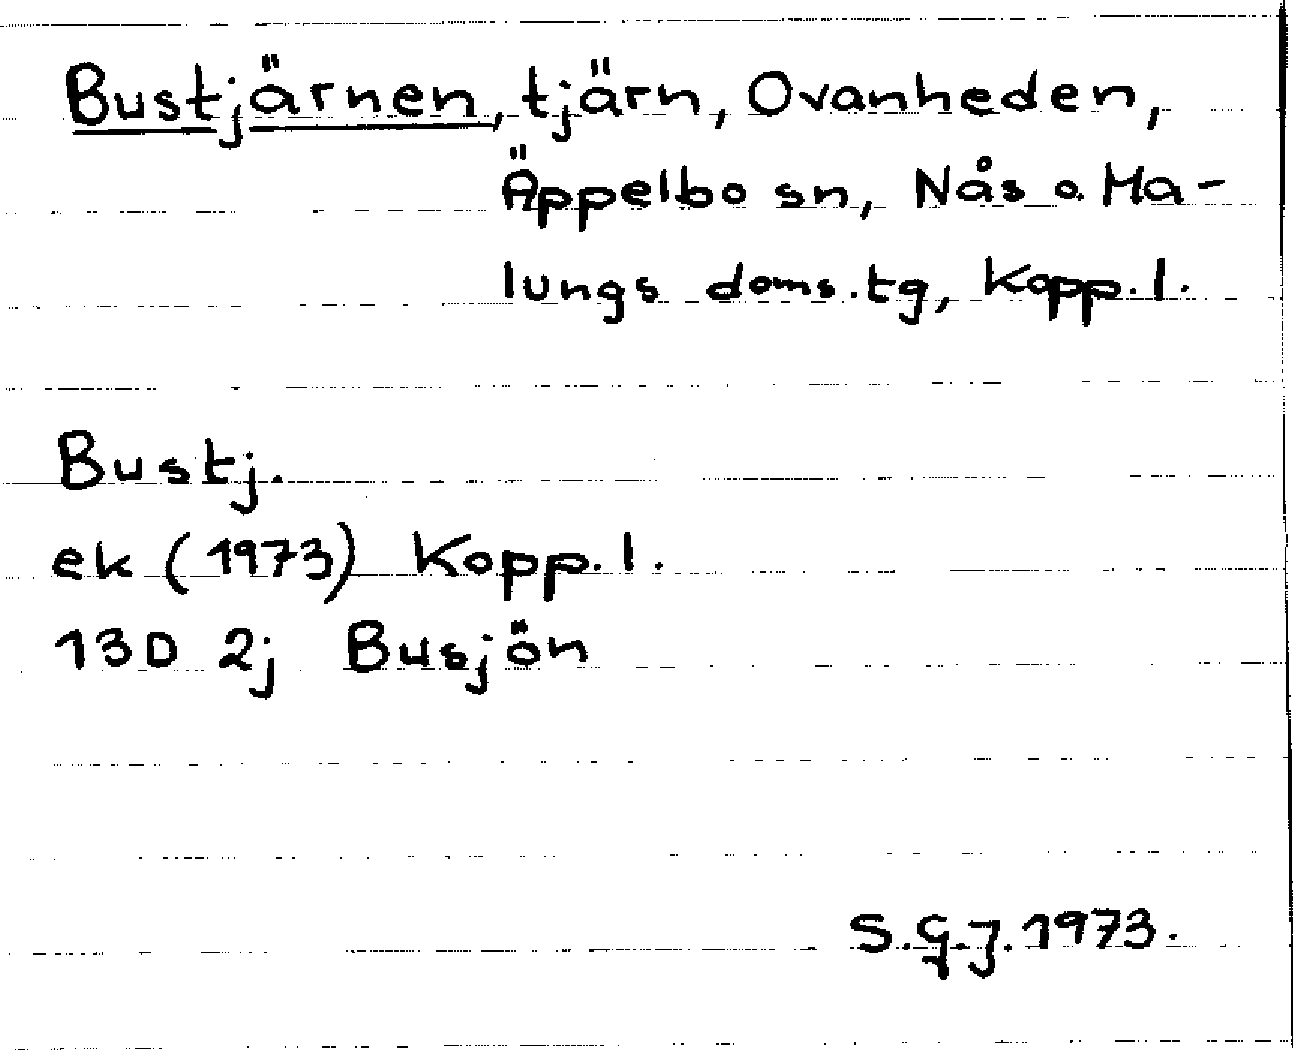 Bustjärnen, tjärn, Ovanheden,
Äppelbo sn, Nås o. Ma-
lungs doms.tg, Kopp.l.
Bustj.
ek (1973) Kopp.l.
13D 2j Busjön
S.G.J. 1973.